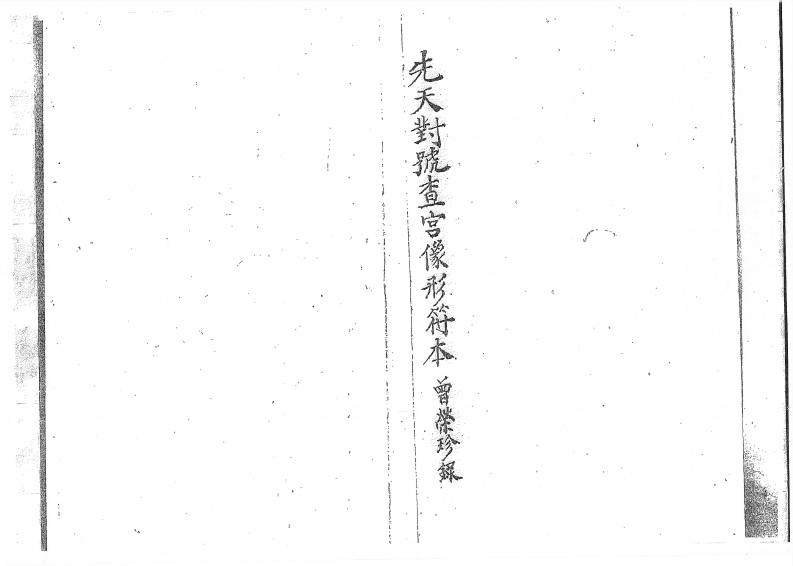 先天對號查宮像形符本 曾榮珍錄